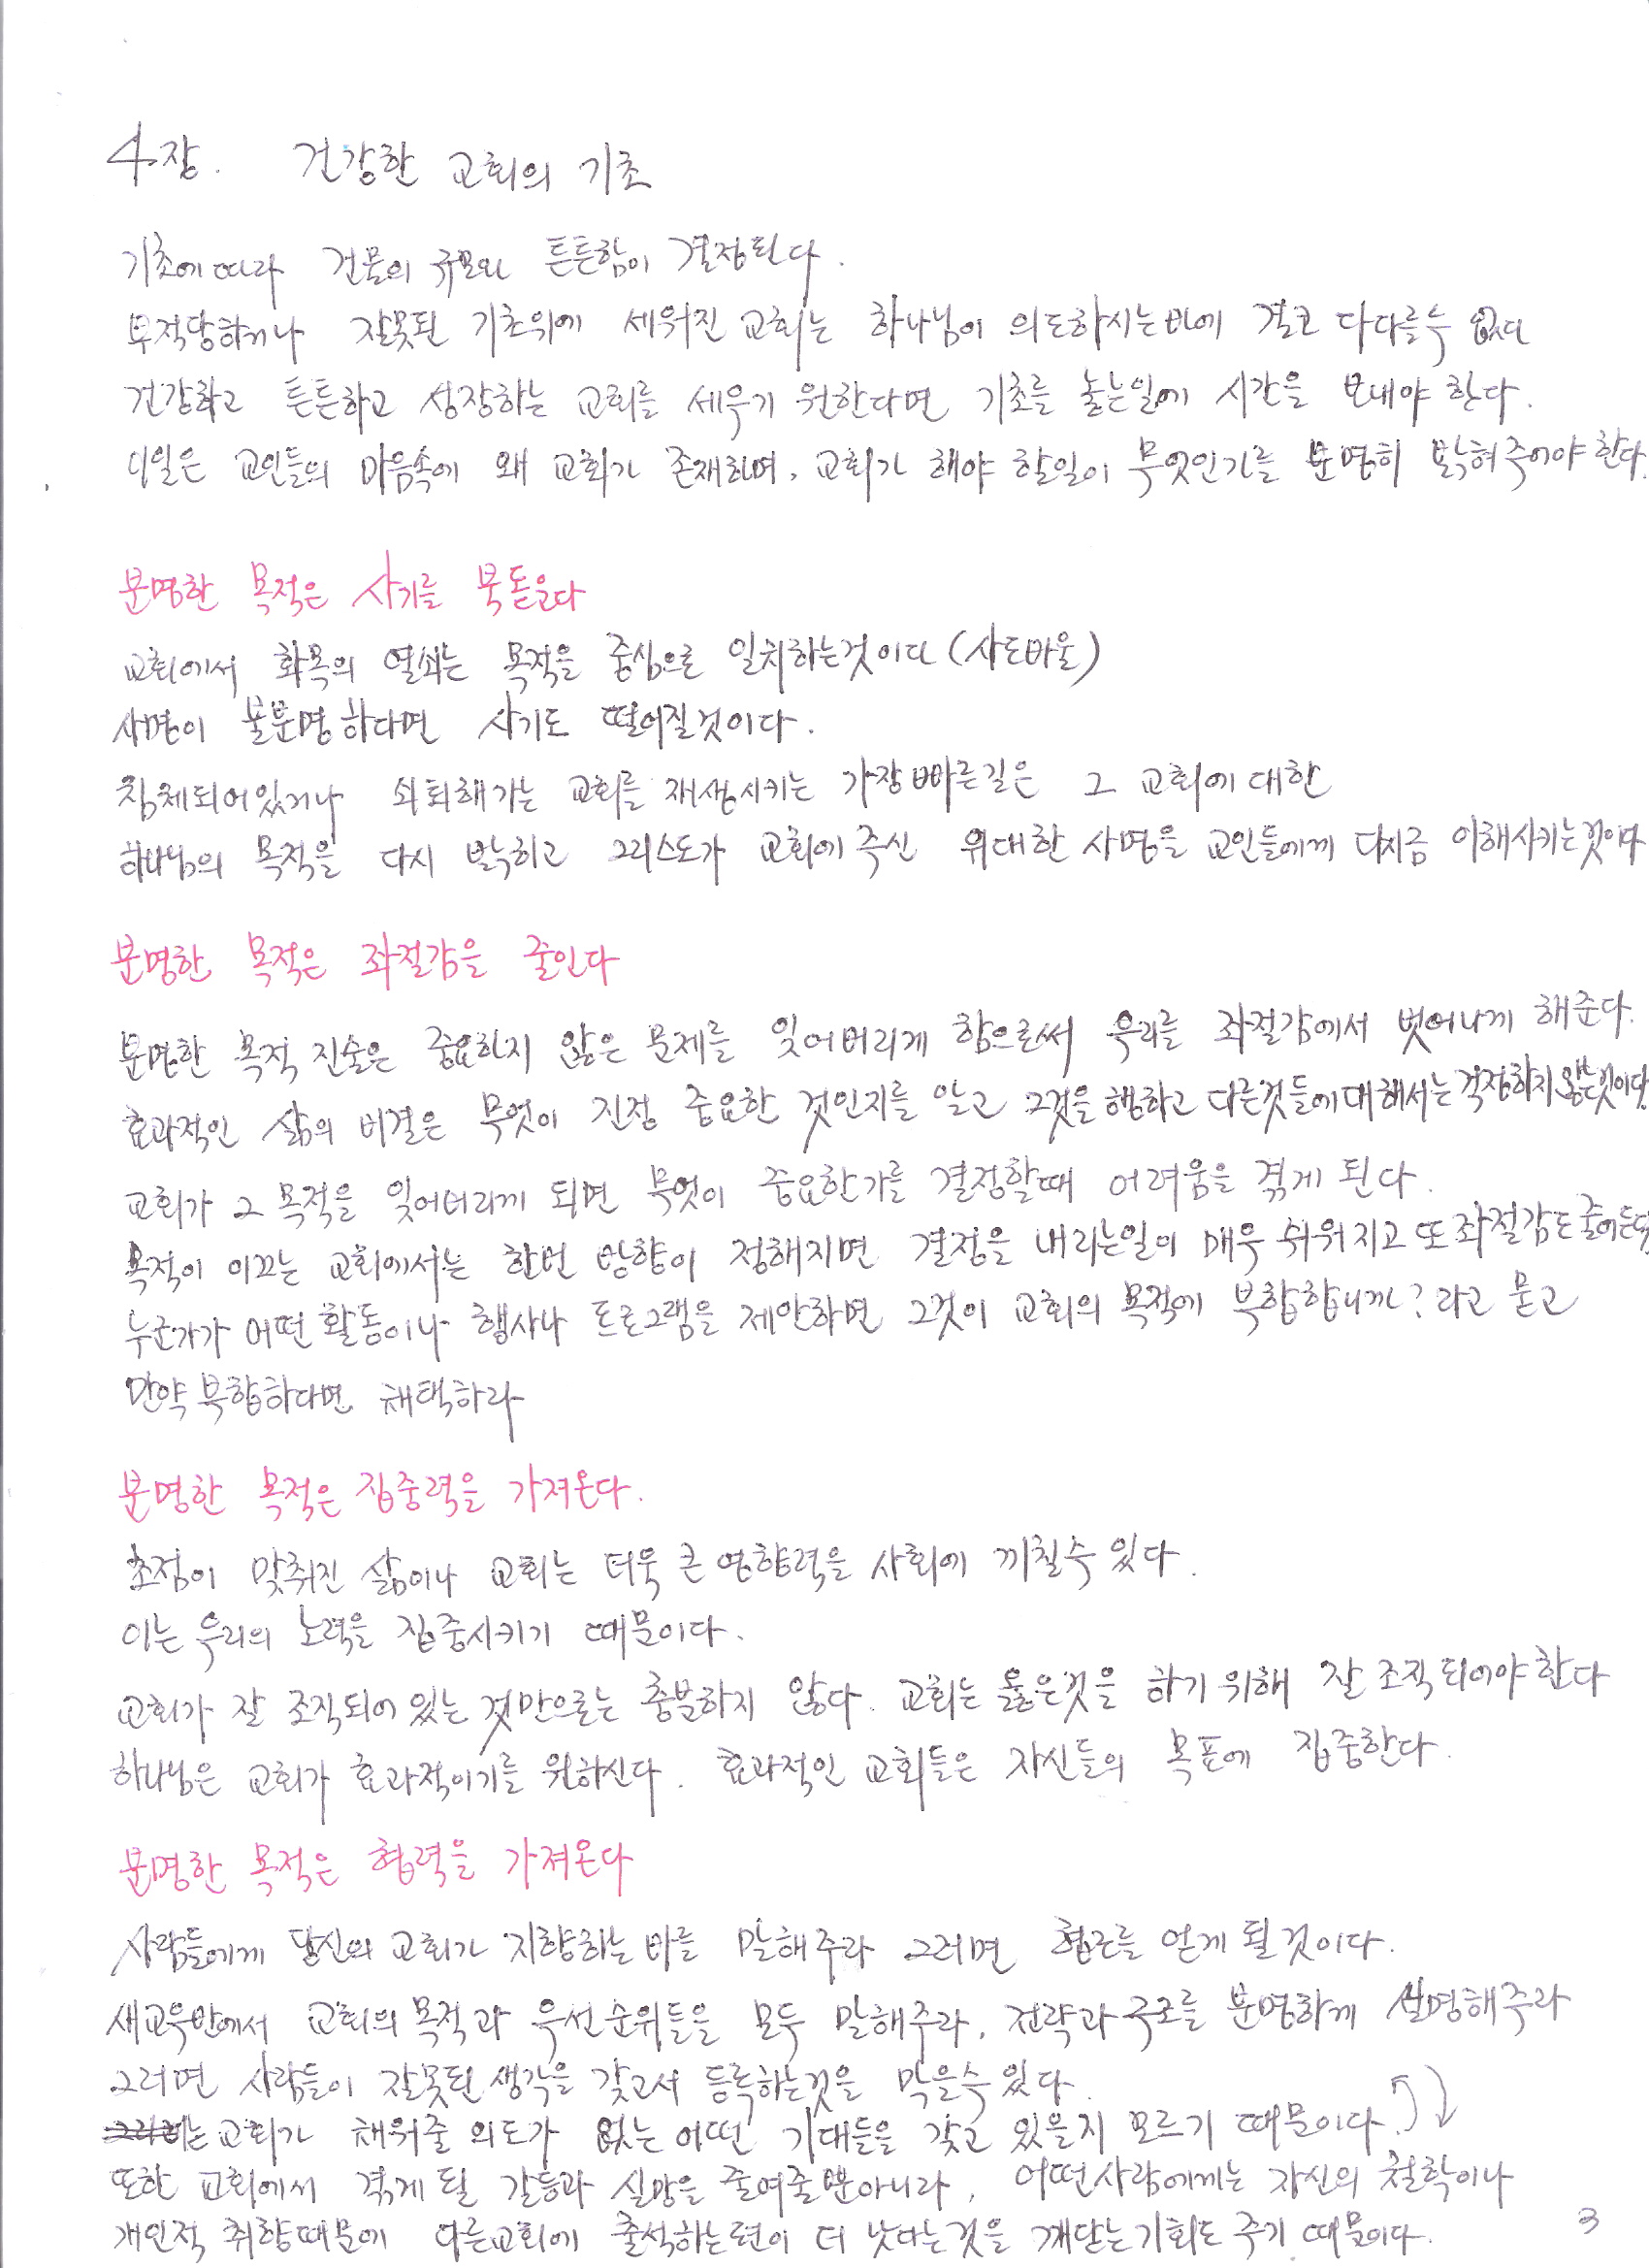 4장. 건강한 교회의 기초
기초에 따라 건물의 규모와 튼튼함이 결정된다.
부적당하거나 잘못된 기초위에 세워진 교회는 하나님이 의도하시는바에 결코 다다를수 없다
건강하고 튼튼하고 성장하는 교회를 세우기 원한다면 기초를 놓는일에 시간을 보내야 한다.
이일은 교인들의 마음속에 왜 교회가 존재하며, 교회가 해야 할일이 무엇인가를 분명히 밝혀주어야 한다.
분명한 목적은 사기를 북돋운다
교회에서 화목의 열쇠는 목적을 중심으로 일치하는것이다 (사도바울)
사명이 불분명하다면 사기도 떨어질것이다.
침체되어있거나 쇠퇴해가는 교회를 재생시키는 가장빠른길은 그 교회에 대한
하나님의 목적을 다시 밝히고 그리스도가 교회에 주신 위대한 사명을 교인들에게 다시금 이해시키는것이다
분명한 목적은 좌절감을 줄인다
분명한 목적 진술은 중요하지 않은 문제를 잊어버리게 함으로써 우리를 좌절감에서 벗어나게 해준다.
효과적인 삶의 비결은 무엇이 진정 중요한 것인지를 알고 그것을 행하고 다른것들에 대해서는 걱정하지 않는것이다.
교회가 그 목적을 잊어버리게 되면 무엇이 중요한가를 결정할때 어려움을 겪게 된다.
목적이 이끄는 교회에서는 한번 방향이 정해지면 결정을 내리는일이 매우 쉬워지고 또 좌절감도 줄어든다
누군가가 어떤 활동이나 행사나 프로그램을 제안하면 그것이 교회의 목적에 부합합니까? 라고 묻고
만약 부합하다면 채택하라
분명한 목적은 집중력을 가져온다.
초점이 맞춰진 삶이나 교회는 더욱 큰 영향력을 사회에 끼칠수 있다.
이는 우리의 노력을 집중시키기 때문이다.
교회가 잘 조직되어 있는 것만으로는 충분하지 않다. 교회는 옳은것을 하기 위해 잘 조직되어야 한다
하나님은 교회가 효과적이기를 원하신다. 효과적인 교회들은 자신들의 목표에 집중한다.
분명한 목적은 협력을 가져온다
사람들에게 당신의 교회가 지향하는 바를 말해주라 그러면 협조를 얻게 될것이다.
새교우반에서 교회의 목적과 우선순위들을 모두 말해주라, 전략과 구조를 분명하게 설명해주라
그러면 사람들이 잘못된 생각을 갖고서 등록하는것을 막을수 있다.
교회가 채워줄 의도가 없는 어떤 기대들을 갖고 있을지 모르기 때문이다.
또한 교회에서 겪게 될 갈등과 실망을 줄여줄뿐아니라, 어떤사람에게는 자신의 철학이나
개인적 취향때문에 다른교회에 출석하는편이 더 낫다는것을 깨닫는기회도 주기 때문이다.
3